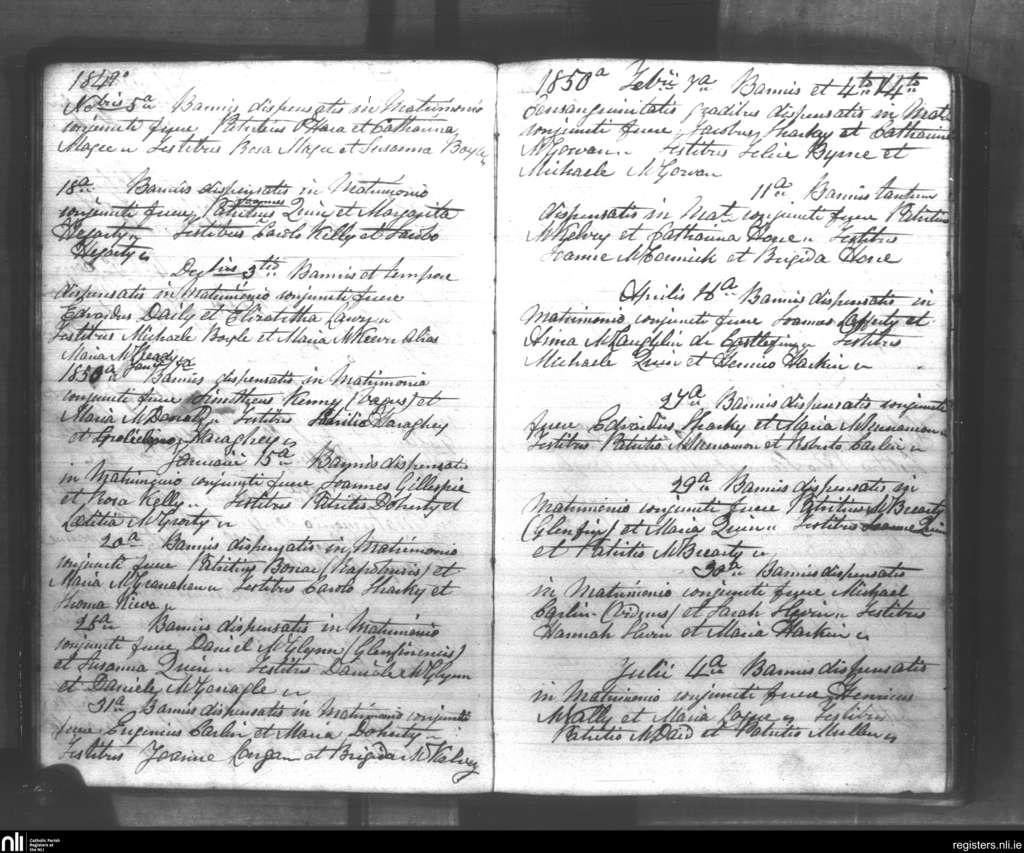 1849°
Nobris 5a Bannis dispensatis in Matrimonio
conjuncti fuere Patritius O'Hara et Catharina
Magee Testibus Rosa Magee et Susanna Boyle
18a Bannis dispensatis in Matrimonio
conjuncti fuere Patritius Quin et Margarita
Hegarty Testibus Carolo Kelly et Jacobo
Hegarty
Decbris 3tio Bannis et tempore
dispensatis in Matrimonio conjuncti fuere
Edvardus Daily et Elizabitha Lawry
Testibus Michaele Boyle et Maria McKeeve alias
Maria McCready
1850a Jany
Bannis dispensatis in Matrimonio
conjuncti fuere Timotheus Kenny (vagus) et
Maria Testibus Daraghey
et Daraghey
Januarii 15a Bannis dispensatis
in Matrimonio conjuncti fuere Joannes Gillespie
et Rosa Kelly Testibus Patritio Doherty et
Lætitia McGroty
20a Bannis dispensatis in Matrimonio
conjuncti fuere Patritius Bonar et
Maria McGranahan Testibus Carolo Sharky et
Thoma
25a Bannis dispensatis in Matrimonio
conjuncti fuere Daniel McGlynn (Glenfinensis)
et Susanna Quin Testibus Daniele McGlynn
et Daniele McGonagle
31a Bannis dispensatis in Matrimonio conjuncti
fuere Eugenius Carlin et Maria Doherty
Testibus Joanne Langan et Brigida McKelvey
1850a Febrii 7a Bannis et 4to 4to
consanguinitatis gradibus dispensatis in Mat.
conjuncti fuere Jacobus Sharky et Catharina
McGowan Testibus Felice Byrne et
Michaele McGowan
11a Bannis tantum
dispensatis in Mat. conjuncti fuere Patritius
McKelvey et Catharina Hone Testibus
Joanne McCormick et Brigida Hone
Aprilis 18a Bannis dispensatis in
Matrimonio conjuncti fuere Joannes Lafferty et
Anna McLaughlin de Castlefinn Testibus
Michaele Quin et Dennis Harkin
27a Bannis dispensatis conjuncti
fuere Edvardus Sharky et Maria McMenamon
Testibus Patritio McMenamon et Roberto Carlin
29a Bannis dispensatis in
Matrimonio conjuncti fuere Patritius McBrearty
(Glenfin) et Maria Quin Testibus Joanne Quin
et Patritio McBrearty
30a Bannis dispensatis
in Matrimonio conjuncti fuere Michael
Carlin (viduus) et Sarah Hevrin Testibus
Hannah Hevrin et Maria Harkin
Julii 4a Bannis dispensatis
in Matrimonio conjuncti fuere Henricus
McNally et Maria Testibus
Patritio McDaid et Patritio Mullan
nli Catholic Parish
Registers at
the NLI
registers.nli.ie